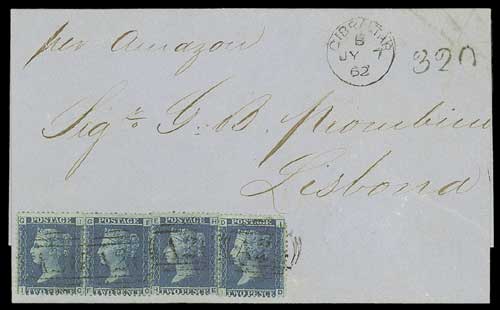 per Amazon
GIBRALTAR
B
JY 7
62
320
Sigr. G. B.
Lisbona
POSTAGE POSTAGE POSTAGE POSTAGE
TWO PENCE TWO PENCE TWO PENCE TWO PENCE